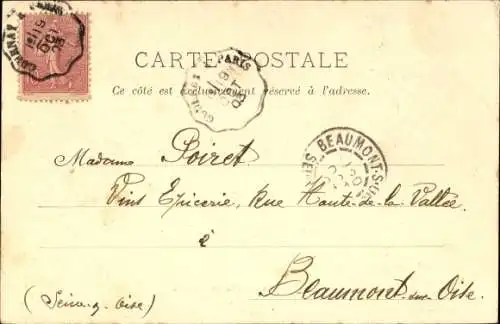 CARTE POSTALE
Ce côté est exclusivement réservé à l'adresse.
PARIS
19
OCT
03
BEAUMONT-S-OISE
Madame Poiret
Vins Epicerie, Rue Haute-de-la Vallée
à
Beaumont-sur-Oise.
(Seine-&-Oise)